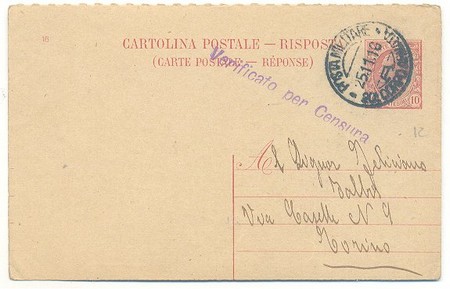 16
CARTOLINA POSTALE — RISPOSTA
(CARTE POSTALE — RÉPONSE)
Verificato per Censura
POSTA MILITARE
25.11.16
10
Al Signor Feliciano
Via Caselle N 9
Torino